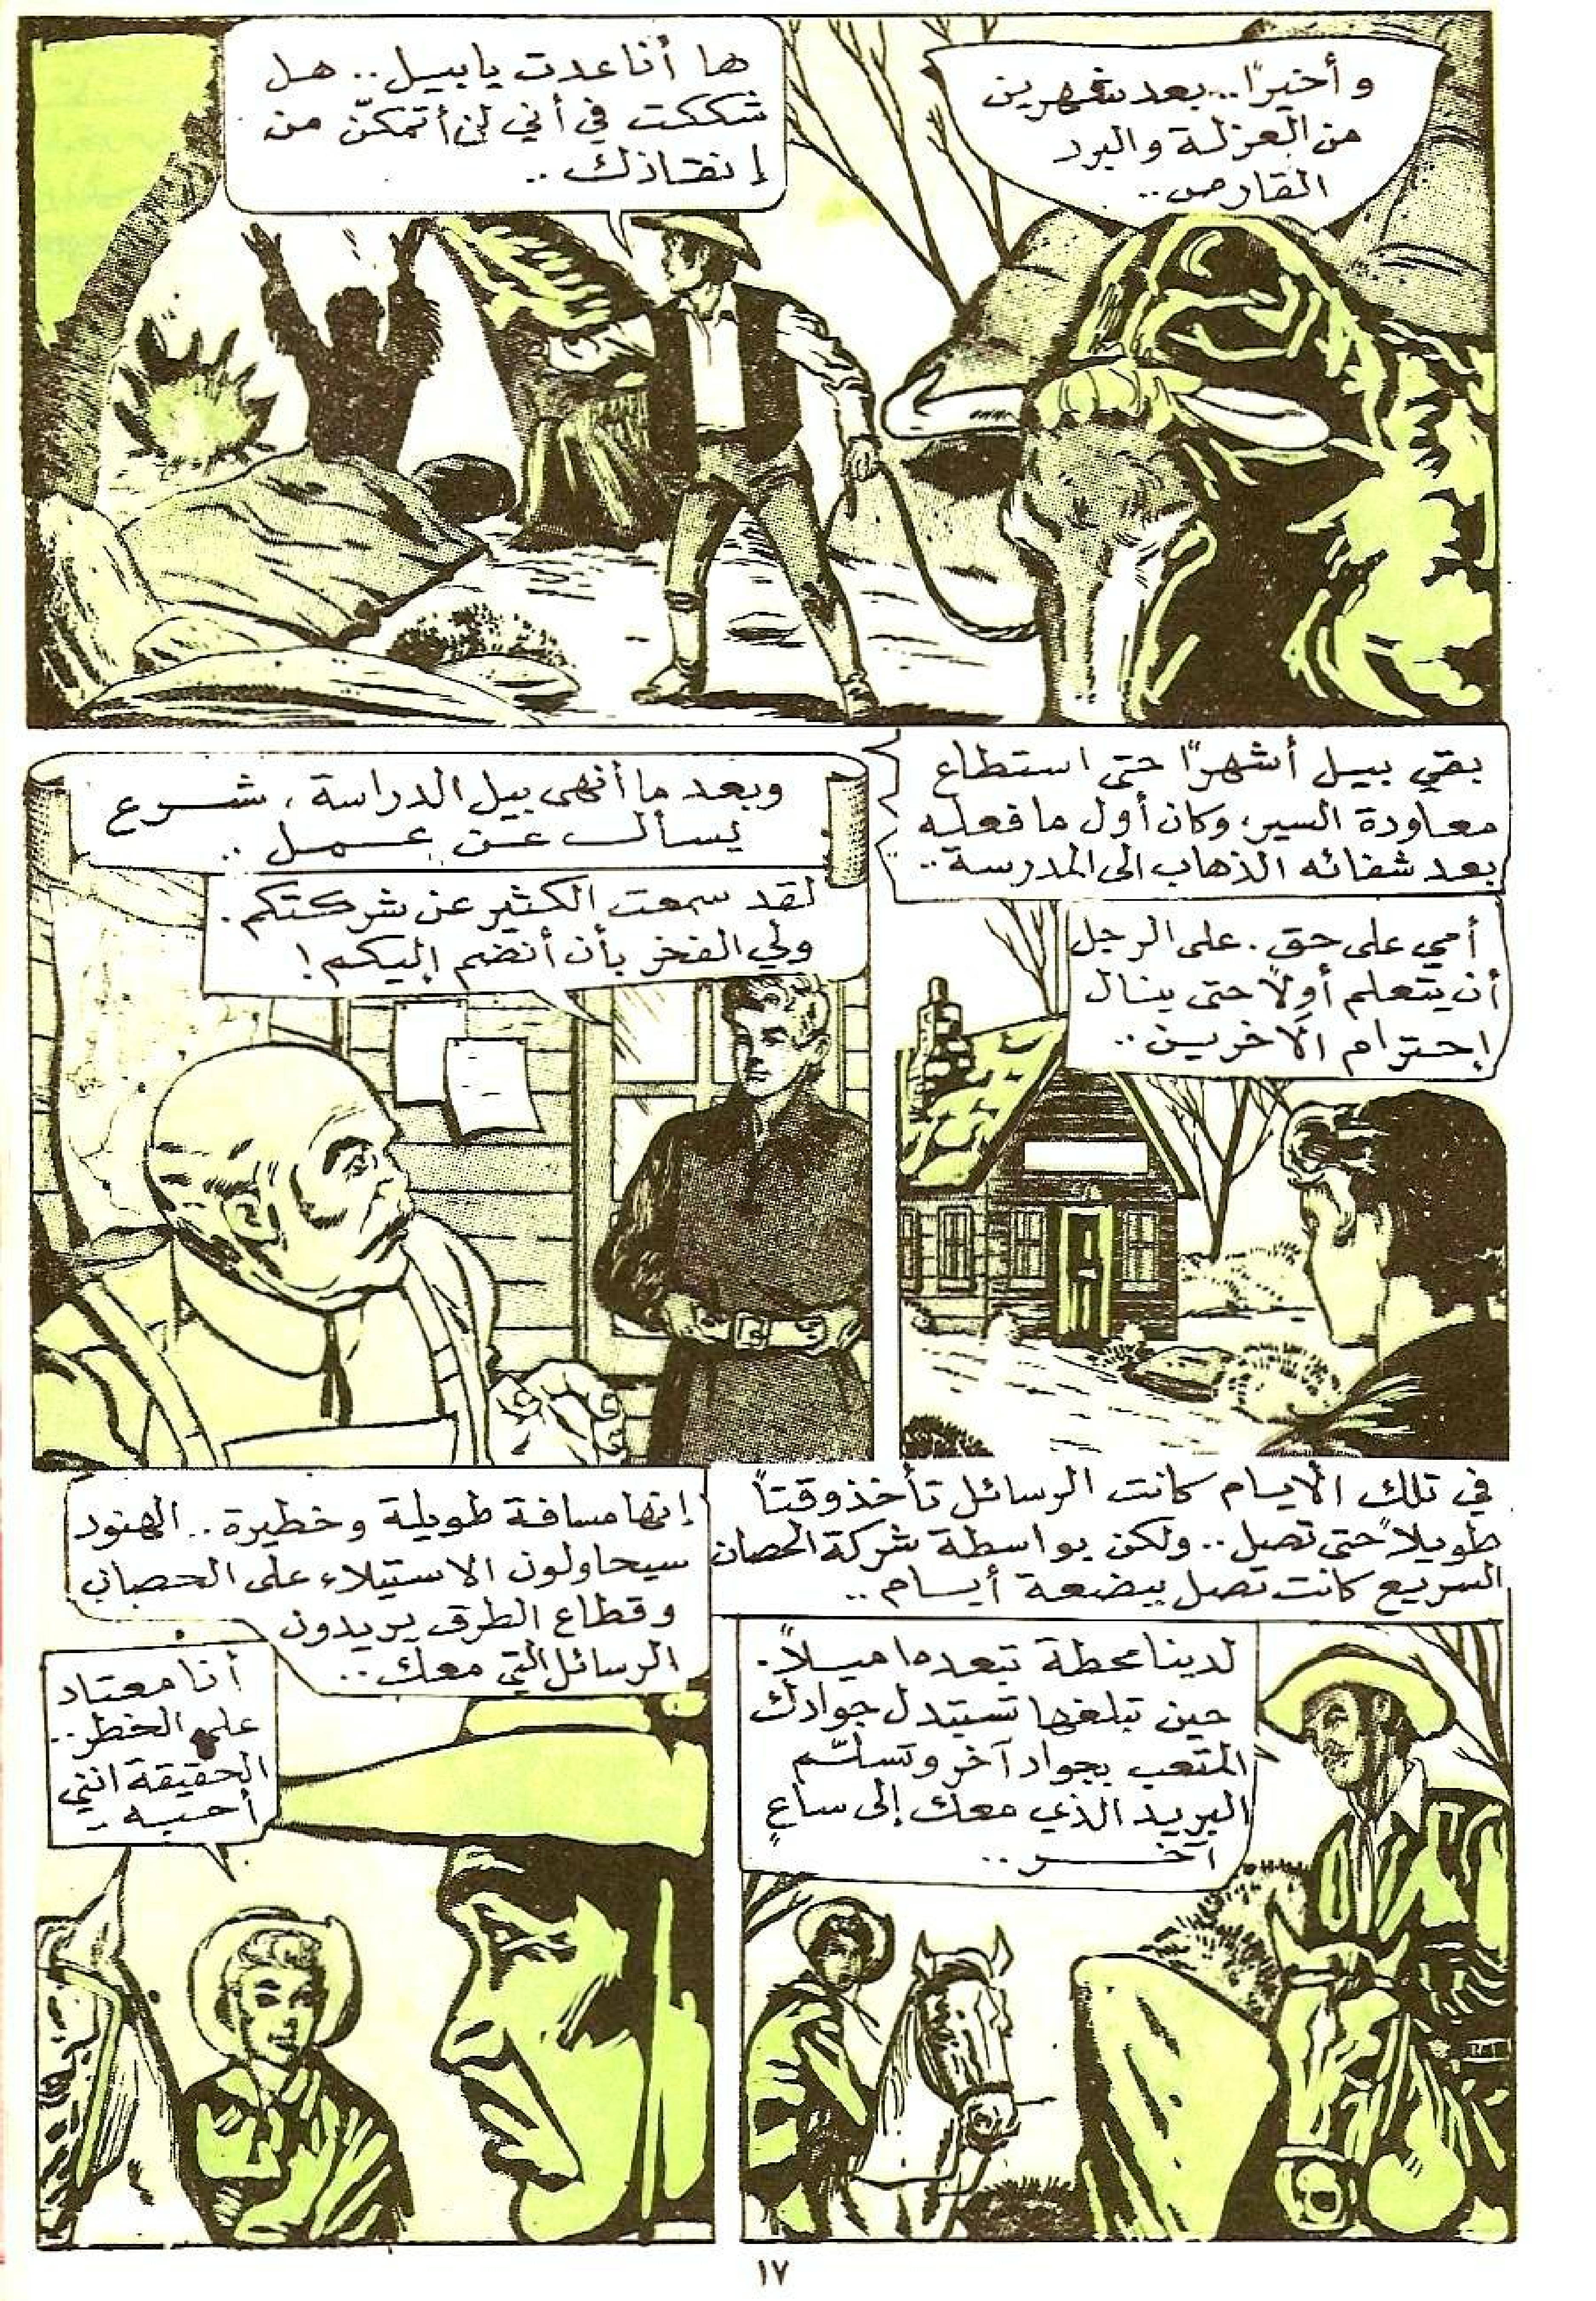 وأخيرًا.. بعد شهرين
من العزلة والبرد
القارص..
ها أنا عدت يا بيل.. هل
شككت في أني لن أتمكّن من
إنقاذك..
بقي بيل أشهرًا حتى استطاع
معاودة السير، وكان أول ما فعله
بعد شفائه الذهاب الى المدرسة..
أمي على حق. على الرجل
أن يتعلم أولاً حتى ينال
إحترام الآخرين..
وبعد ما أنهى بيل الدراسة، شرع
يسأل عن عمل..
لقد سمعت الكثير عن شركتكم.
ولي الفخر بأن أنضم إليكم!
في تلك الأيام كانت الرسائل تأخذ وقتاً
طويلاً حتى تصل.. ولكن بواسطة شركة الحصان
السريع كانت تصل ببضعة أيام..
لدينا محطة تبعد ١٥ ميلاً.
حين تبلغها تستبدل جوادك
المتعب بجواد آخر وتسلّم
البريد الذي معك إلى ساعٍ
آخر..
إنها مسافة طويلة وخطيرة.. الهنود
سيحاولون الاستيلاء على الحصان
وقطاع الطرق يريدون
الرسائل التي معك..
أنا معتاد
على الخطر..
الحقيقة انني
أحبه..
١٧